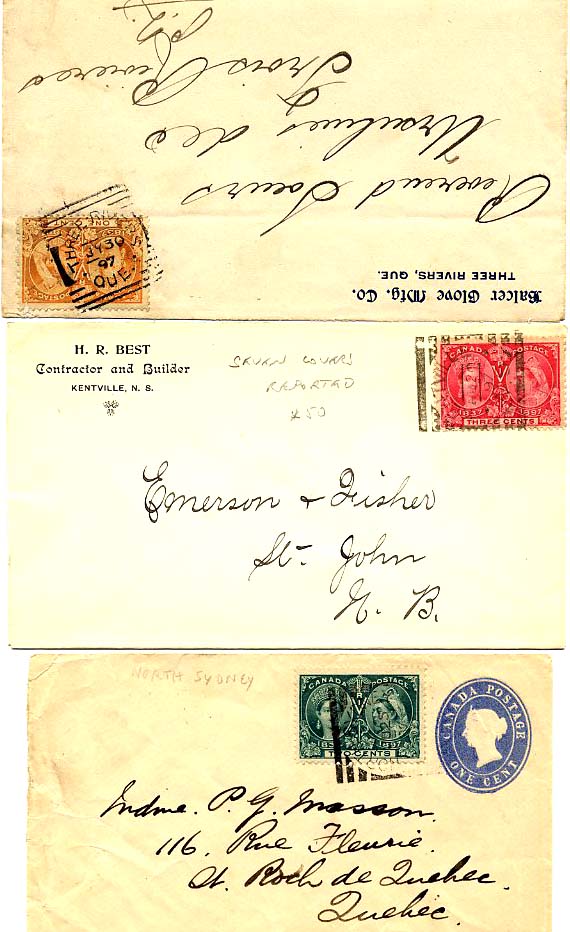 Balcer Glove Mfg. Co.
THREE RIVERS, QUE.
Reverend Soeurs
Ursulines des
Trois Rivieres
P.Q.
THREE RIVERS
JY 30
97
QUE.
ONE CENT
H. R. BEST
Contractor and Builder
KENTVILLE, N. S.
SEVEN COVERS
REPORTED
£50
CANADA POSTAGE
1837 1897
THREE CENTS
Emerson & Fisher
St- John
N. B.
NORTH SYDNEY
CANADA POSTAGE
1837 1897
TWO CENTS
CANADA POSTAGE
ONE CENT
Mdme. P. G. Masson.
116. Rue Fleurie.
St. Roch de Quebec.
Quebec.